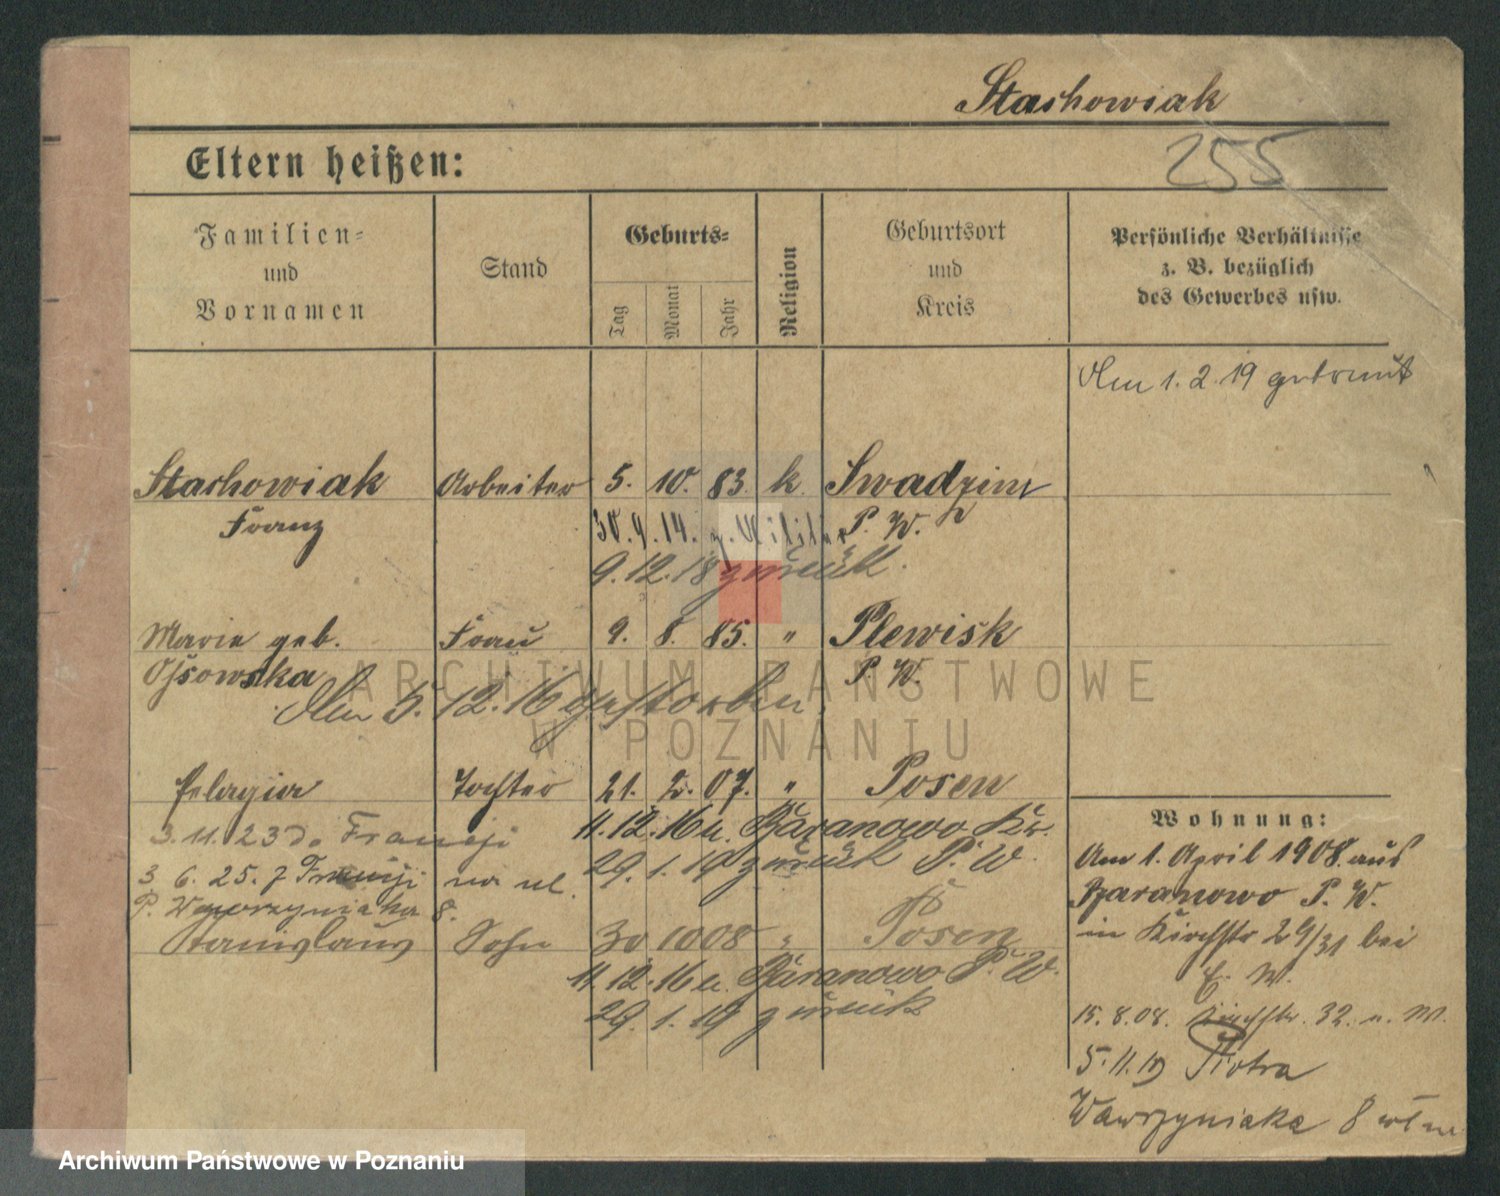 Stachowiak
255
Eltern heißen:
Familien-
und
Vornamen
Stand
Geburts-
Tag
Monat
Jahr
Religion
Geburtsort
und
Kreis
Persönliche Verhältnisse
z. B. bezüglich
des Gewerbes usw.
Am 1. 2. 19 getraut
Stachowiak Arbeiter 5. 10. 83. k. Swadzim
Franz 30. 9. 14. z. Militär P. W.
9. 12. 18 zurück.
Marie geb. Frau 9. 8. 85. " Plewisk
Ossowska P. W.
Am 5. 12. 16 gestorben
ARCHIWUM PAŃSTWOWE
W POZNANIU
Pelagia Tochter 21. 2. 07. " Posen
11. 12. 16 n. Baranowo Kr.
3. 11. 23 do Francji
29. 1. 19 zurück P. W.
3 6. 25. z Francji na ul.
P. Wawrzyniaka 8.
Stanislaus Sohn 30 10 08 " Posen
11. 12. 16 n. Baranowo P. W.
29. 1. 19 zurück
Wohnung:
Am 1. April 1908 aus
Baranowo P. W.
in Kirchstr 29/31 bei
E. W.
15. 8. 08. Kirchstr. 32. n. W.
5. 11. 19 Piotra
Wawrzyniaka 8
Archiwum Państwowe w Poznaniu